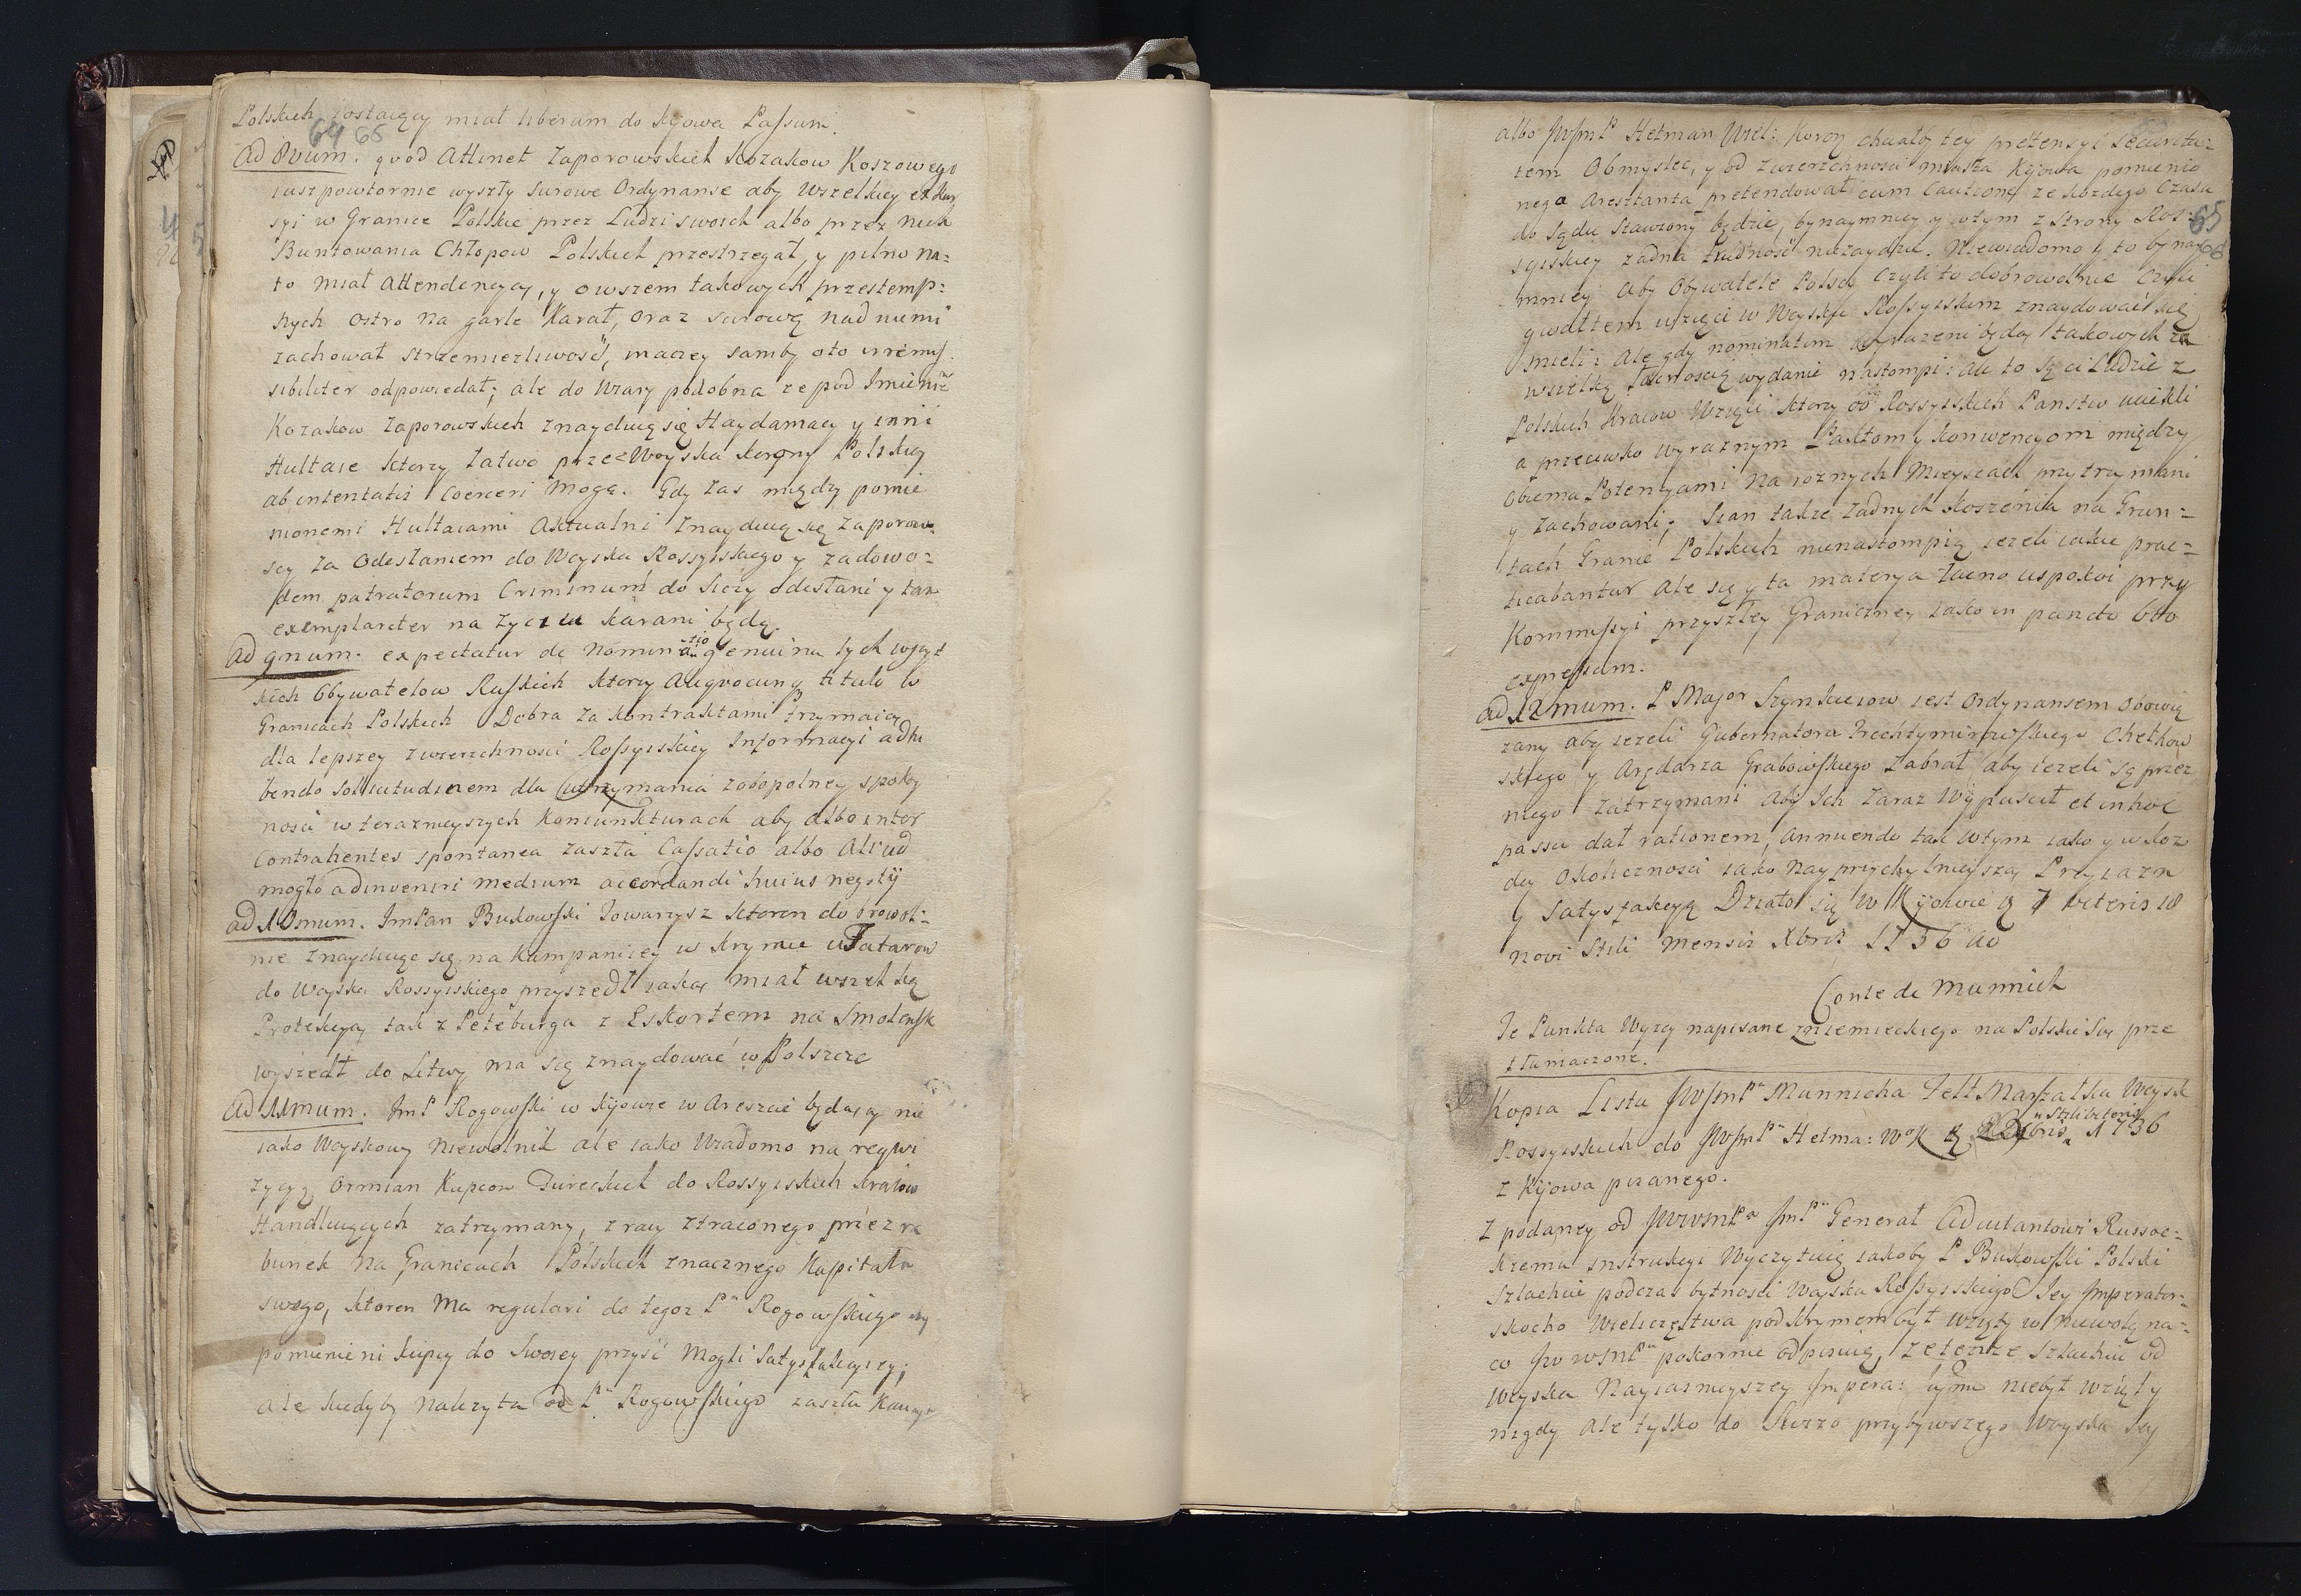 Polskich zostaiący miał liberum do Kijowa Passum.
64 65
Ad 8vum. qvod Attinet Zaporowskich Kozakow Koszowego
iusz powtornie wyszły surowe Ordynanse aby Wszelkiey exkur
syi w Granice Polskie przez Ludzi swoich albo przez nich
Buntowania Chłopow Polskich przestrzegał, y pilno na=
to miał Attendencyą, y owszem takowych przestemp=
nych ostro na garle Karał, oraz surową nad niemi
zachował strzemiezliwość, inaczey samby oto irremis
sibiliter odpowiedał; ale do Wiary podobna ze pod Imieniem
Kozakow Zaporowskich znayduią się Haydamacy y inni
Hultaie ktorzy Łatwo przez Woyska Korony Polskiey
ab intentatis Coerceri Mogą. Gdy zas między pomie
nionemi Hultaiami Aktualni Znayduią się Zaporow
scy Za Odesłaniem do Woyska Rossyiskiego y zadowo=
dem patratorum Criminum do Siczy odesłani y tam
exemplariter na Zyciu karani będą.
Ad 9num. expectatur de nominatio genuina tych wszyst
kich Obywatelow Ruskich ktorzy Aliqvocunq titulo w
Granicach Polskich Dobra Za Kontraktami Trzymaią
dla lepszey zwierzchnosci Rossyiskiey Informacyi adhi
bendo Sollicitudinem dla Utrzymania zobopolney spokoy
nosci w teraznieyszych Koniunkturach aby albo inter
Contrahentes spontanea zaszła Cassatio albo Aliud
mogło adinveniri medium accordandi huius negotij
ad 10mum. ImPan Bukowski Towarzysz ktoren dobrowol=
nie znayduiąc się na Kampaniiey w Krymie u Tatarow
do Woyska Rossyiskiego przyszedł iaką miał wszelką
Protekcyą tak z Peteburga z Eskortem na Smolensk
wyszedł do Litwy ma się znaydować w Polszcze
Ad 11mum. ImP Rogowski w Kijowie w Areszcie będący nie
iako Woyskowy niewolnik ale iako Wiadomo na reqwi
zycyą Ormian Kupcow Tureckich do Rossyiskich Kraiow
Handluiących zatrzymany, z racy ztraconego przez ra
bunek na Granicach Polskich znacznego Kapitału
swego, ktoren ma regulari do tegoz Pa Rogowskiego aby
pomienieni kupcy do Swoiey przyść Mogli Satysfakcyiey;
ale kiedyby nalezyta od Pa Rogowskiego zaszła Kaucya
albo JWJmP Hetman Wiel: Koron chwały tey pretensyi Securita=
tem Obmyslec, y od zwierzchnosci miasta Kijowa pomienio
nego Aresztanta pretendował cum Cautione ze kozdego Czasu
65
do Sądu Stawiony będzie, bynaymniey y wtym z Strony Ros=
66
syiskiey zadna trudność niezaydzie. Niewiadomo y to bynay
mniey aby Obywatele Polscy czyli to dobrowolnie czyli
gwałtem wzięci w Woysku Rossyiskim znaydować się
mieli: Ale gdy nominatim wyrazeni będą takowych za
wszelką pilnoscią wydanie nastompi: ale to są ci Ludzie z
Polskich Kraiow Wzięci ktorzy od Rossyiskich Panstw uciekli
a przeciwko Wyraznym Paktom y konwencyom między
obiema Potencyami na roznych Mieyscach przytrzymani
y Zachowani; Sian także Zadnych Koszenia na Grun=
tach Granic Polskich nienastompią, iezeli iakie prac=
ticabantur ale się y ta materya Łacno uspokoi przy
Kommissyi przyszłey Graniczney iako in puncto 6to
expressum.
Ad 12mum. P Major Szynkuiow iest Ordynansem obowią
zany aby iezeli Gubernatora Trechtymirowskiego Chetkow
skiego y Arędarza Grabowskiego Zabrał aby iezeli są przez
niego zatrzymani Aby Ich Zaraz Wypuscił et in hoc
passu dał rationem, Annuendo tak wtym iako y w koz
dey okolicznosci iako nayprzychylnieyszą Przyiazn
y satysfakcyą Działo się w Kijowie d 7 veteris 18
novi Stili Mensis Xbris 1736 Ao
Conte de Munnich
Te Punkta Wyzey napisane zniemieckiego na Polskie są prze
tłumaczone.
Kopia Listu JWJmPa Munnicha Felt Marszałka Woysk
Rossyiskich do JWJmPa Hetma: WoK d 22 Xbris 1736
z Kijowa pisanego.
Z podaney od JWWsmPa JmPa Generał Adiutantowi Russoc=
kiemu instrukcyi Wyczytuię iakoby P Bukowski Polski
Szlachcic podczas bytnosci Woyska Rossyiskiego Jey Imperator=
skocho Wieliczęstwa pod Krymem był wzięty w niewolę na=
co JWWsmPa pokornie odpisuię, ze tenze Szlachcic od
Woyska Nayiasnieyszey Impera: niebył wzięty
nigdy Ale tylko do Swiezo przybywszego Woyska Jey